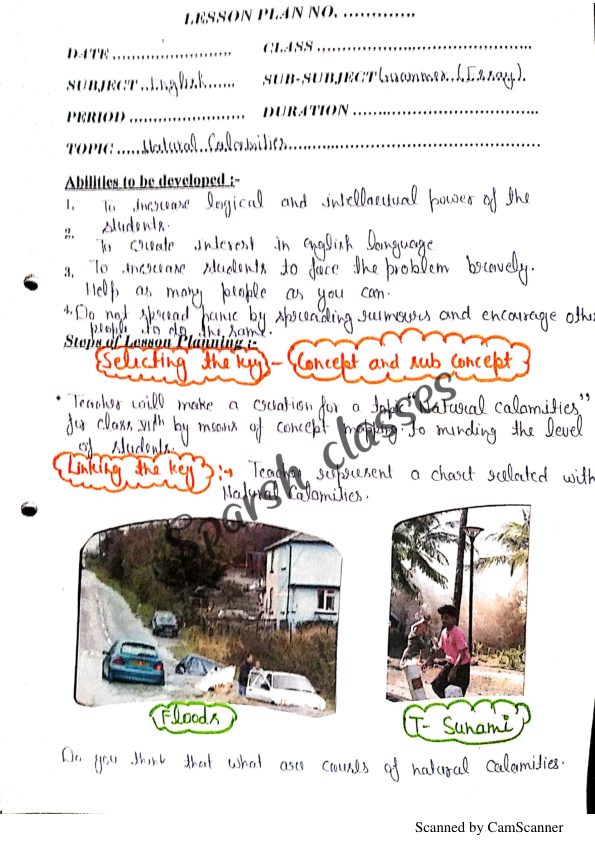 LESSON PLAN NO. .............
DATE ........................ CLASS ........................................
SUBJECT ..English...... SUB-SUBJECT Grammer (Essay).
PERIOD ....................... DURATION ..................................
TOPIC .....Natural Calamities..............................................
Abilities to be developed :-
1. To increase logical and intellectual power of the
students.
2. To create interest in english language
3. To increase students to face the problem bravely.
Help as many people as you can.
4. Do not spread panic by spreading rumours and encourage other
people to do the same.
Steps of Lesson Planning :-
Selecting the key - Concept and sub concept
• Teacher will make a creation for a topic "Natural calamities"
for class by means of concept mapping to minding the level
of students.
Linking the key :→ Teacher represent a chart related with
Natural Calamities.
Sparsh classes
Floods
T-Sunami
Do you think that what are of natural calamities.
Scanned by CamScanner